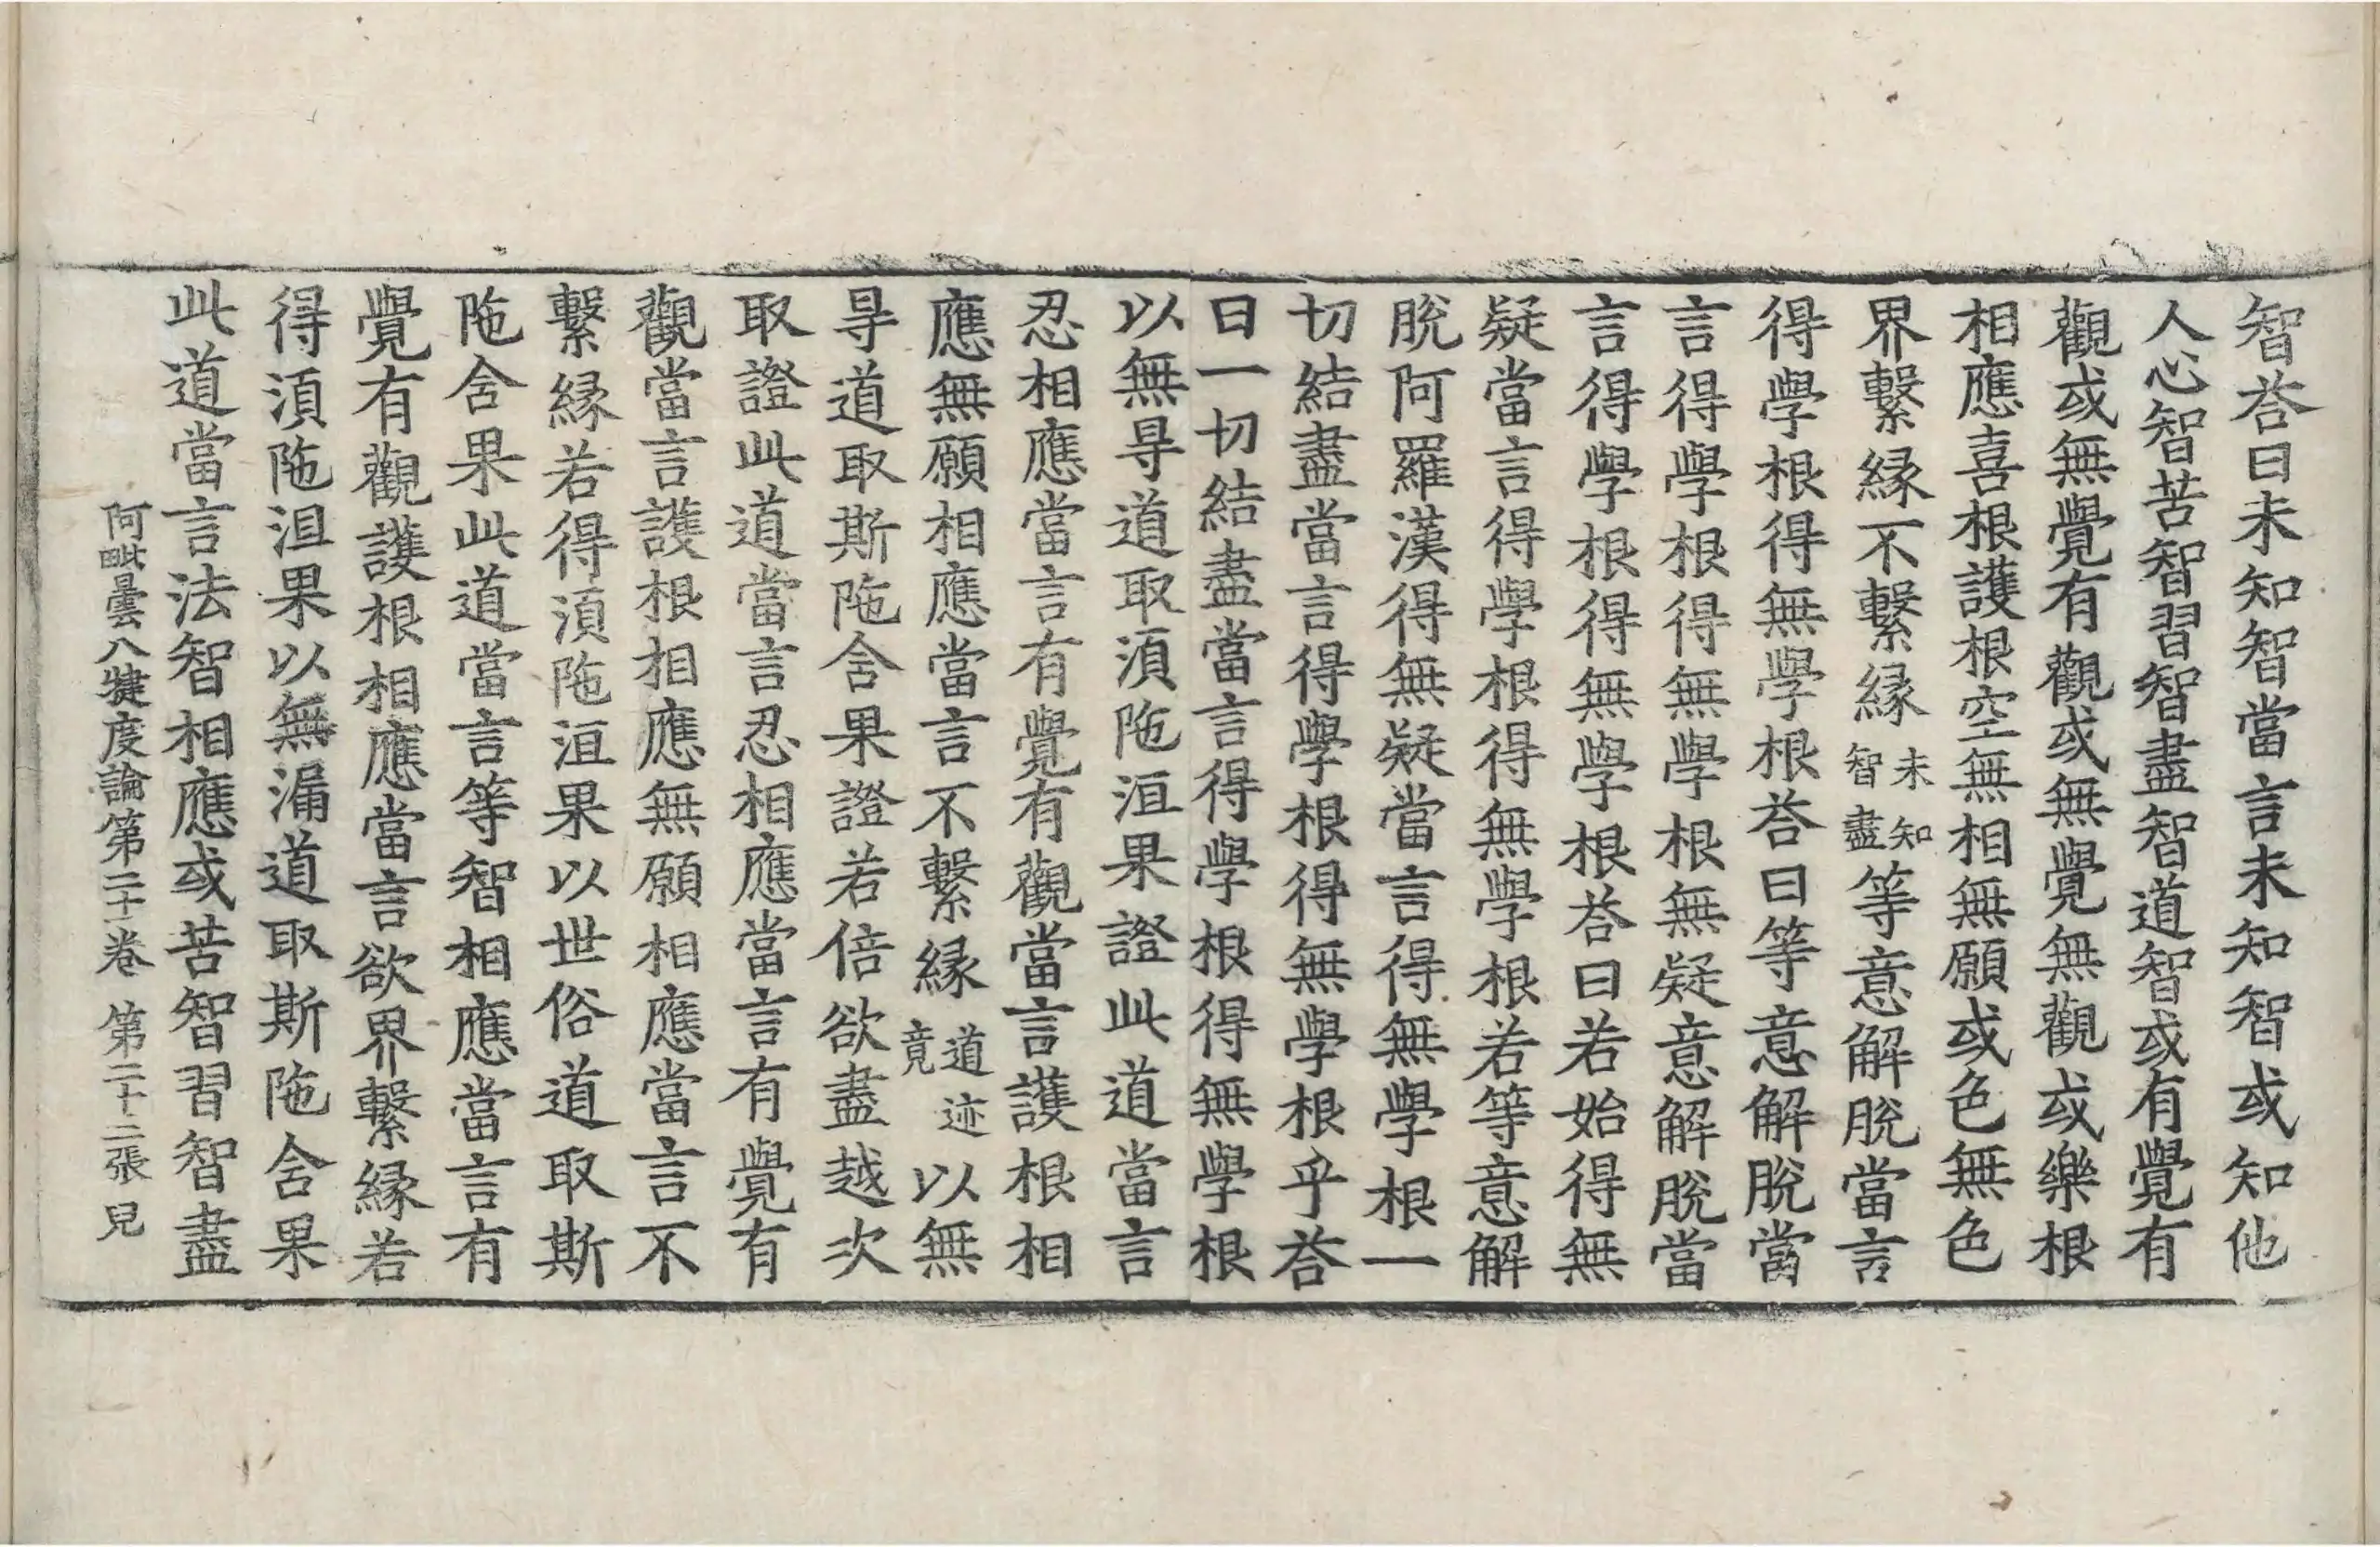 智荅曰未知智當言未知智或知他
人心智苦智習智盡智道智或有覺有
觀或無覺有觀或無覺無觀或樂根
相應喜根護根空無相無願或色無色
界繫縁不繫縁未知智盡等意解脫當言
得學根得無學根荅曰等意解脫當
言得學根得無學根無疑意解脫當
言得學根得無學根荅曰若始得無
疑當言得學根得無學根若等意解
脫阿羅漢得無疑當言得無學根一
切結盡當言得學根得無學根乎荅
曰一切結盡當言得學根得無學根
以無㝵道取湏陁洹果證此道當言
忍相應當言有覺有觀當言護根相
應無願相應當言不繫縁道迹竟以無
㝵道取斯陁含果證若倍欲盡越次
取證此道當言忍相應當言有覺有
觀當言護根相應無願相應當言不
繫縁若得湏陁洹果以世俗道取斯
陁含果此道當言等智相應當言有
覺有觀護根相應當言欲界繫縁若
得湏陁洹果以無漏道取斯陁含果
此道當言法智相應或苦智習智盡
阿毗曇八犍度論第二十一卷 第二十二張 皃